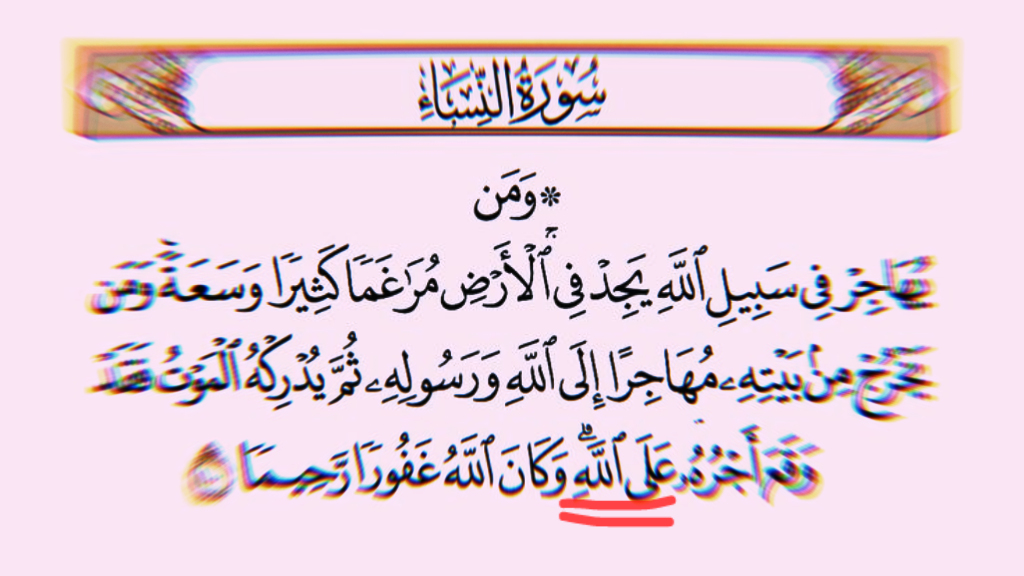 سُورَةُ النِّسَاءِ
*وَمَن
يُهَاجِرْ فِي سَبِيلِ ٱللَّهِ يَجِدْ فِي ٱلْأَرْضِ مُرَٰغَمًا كَثِيرًا وَسَعَةً ۚ وَمَن
يَخْرُجْ مِنۢ بَيْتِهِۦ مُهَاجِرًا إِلَى ٱللَّهِ وَرَسُولِهِۦ ثُمَّ يُدْرِكْهُ ٱلْمَوْتُ فَقَدْ
وَقَعَ أَجْرُهُۥ عَلَى ٱللَّهِ ۗ وَكَانَ ٱللَّهُ غَفُورًا رَّحِيمًا ١٠٠